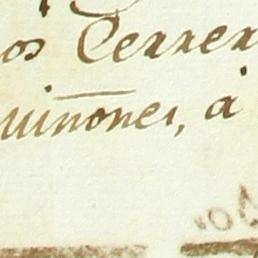 os Cerrer
uiñones, á